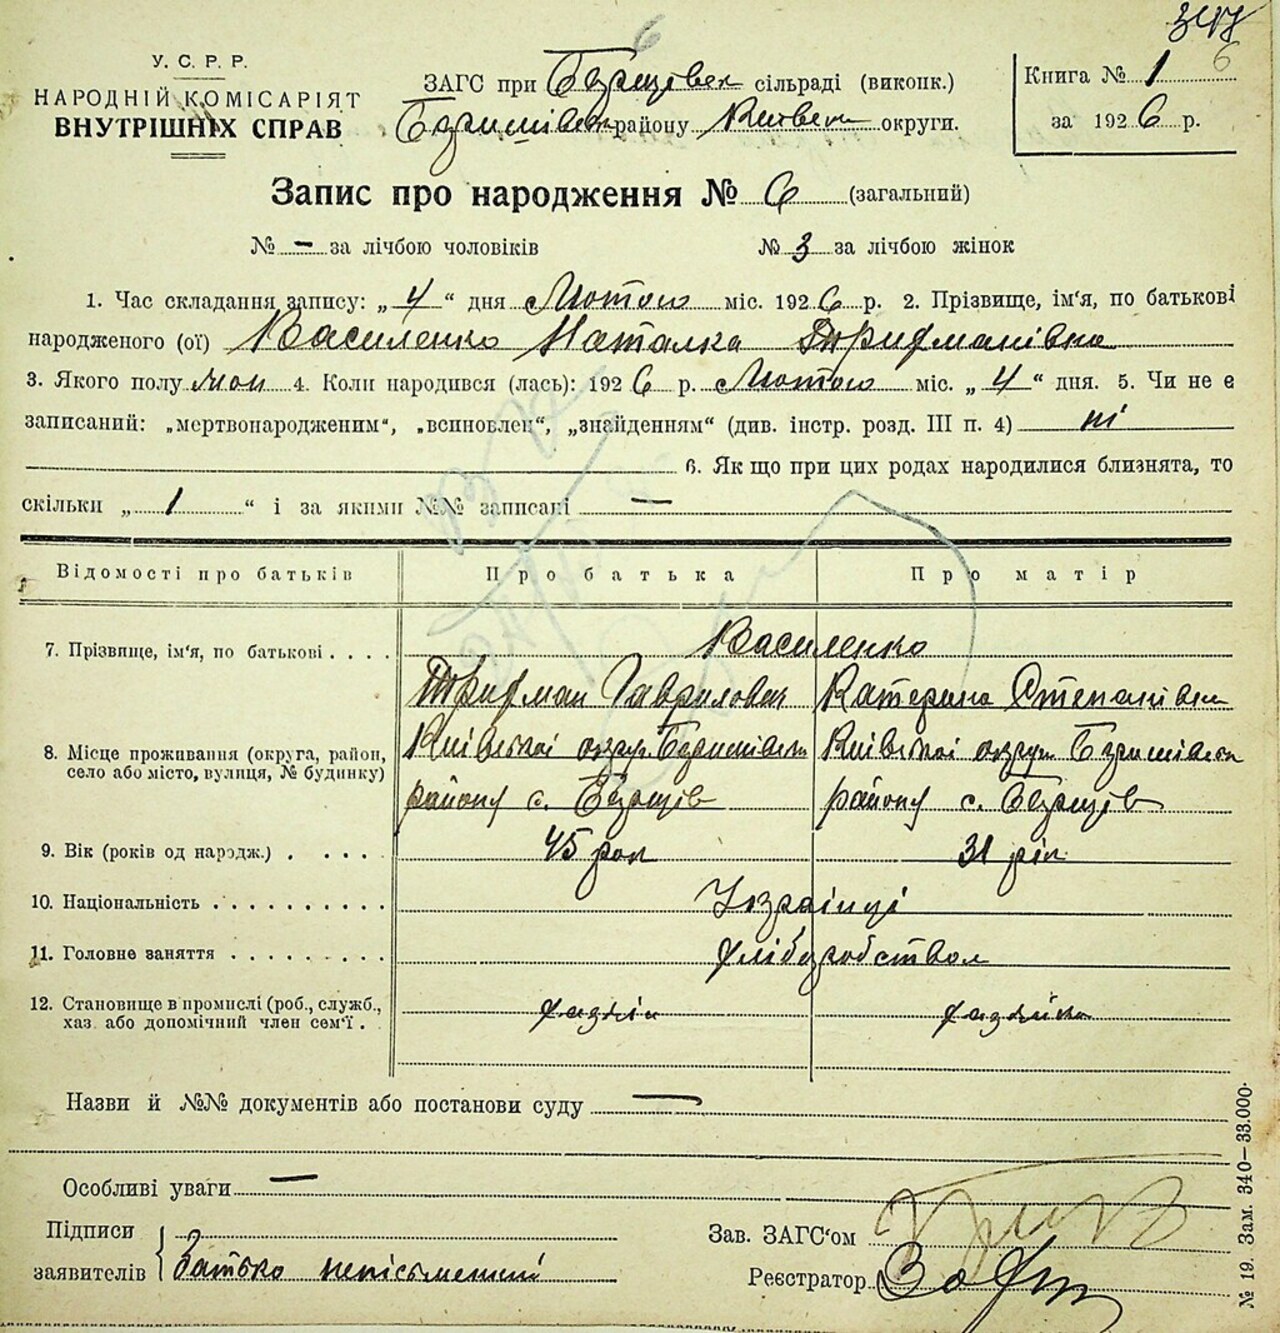 У. С. Р. Р.
НАРОДНІЙ КОМІСАРІЯТ
ВНУТРІШНІХ СПРАВ
6
ЗАГС при сільраді (виконк.)
району округи.
Книга № 1 6
за 1926 р.
Запис про народження № 6 (загальний)
№ – за лічбою чоловіків № 3 за лічбою жінок
1. Час складання запису: „4“ дня Лютого міс. 1926 р. 2. Прізвище, ім‘я, по батькові
народженого (ої) Василенко Наталка Трифманівна
3. Якого полу жін 4. Коли народився (лась): 1926 р. Лютого міс. „4“ дня. 5. Чи не є
записаний: „мертвонародженим“, „всиновлен“, „знайденням“ (див. інстр. розд. III п. 4) ні
6. Як що при цих родах народилися близнята, то
скільки „1“ і за якими №№ записані —
Відомості про батьків Про батька Про матір
7. Прізвище, ім‘я, по батькові . . . . Василенко
Трифман Гаврилович Катерина Степанівна
8. Місце проживання (округа, район, Київської округ Київської округ
село або місто, вулиця, № будинку) району с. району с.
9. Вік (років од народж.) . . . . . 45 рок 31 рік
10. Національність . . . . . . . . . . Українці
11. Головне заняття . . . . . . . . . хліборобством
12. Становище в промислі (роб., служб., хазяїн хазяйка
хаз. або допомічний член сем‘ї .
Назви й №№ документів або постанови суду —
Особливі уваги —
Підписи
заявителів Батько неписьменний
Зав. ЗАГС‘ом
Реєстратор
№ 19. Зам. 340–33.000.